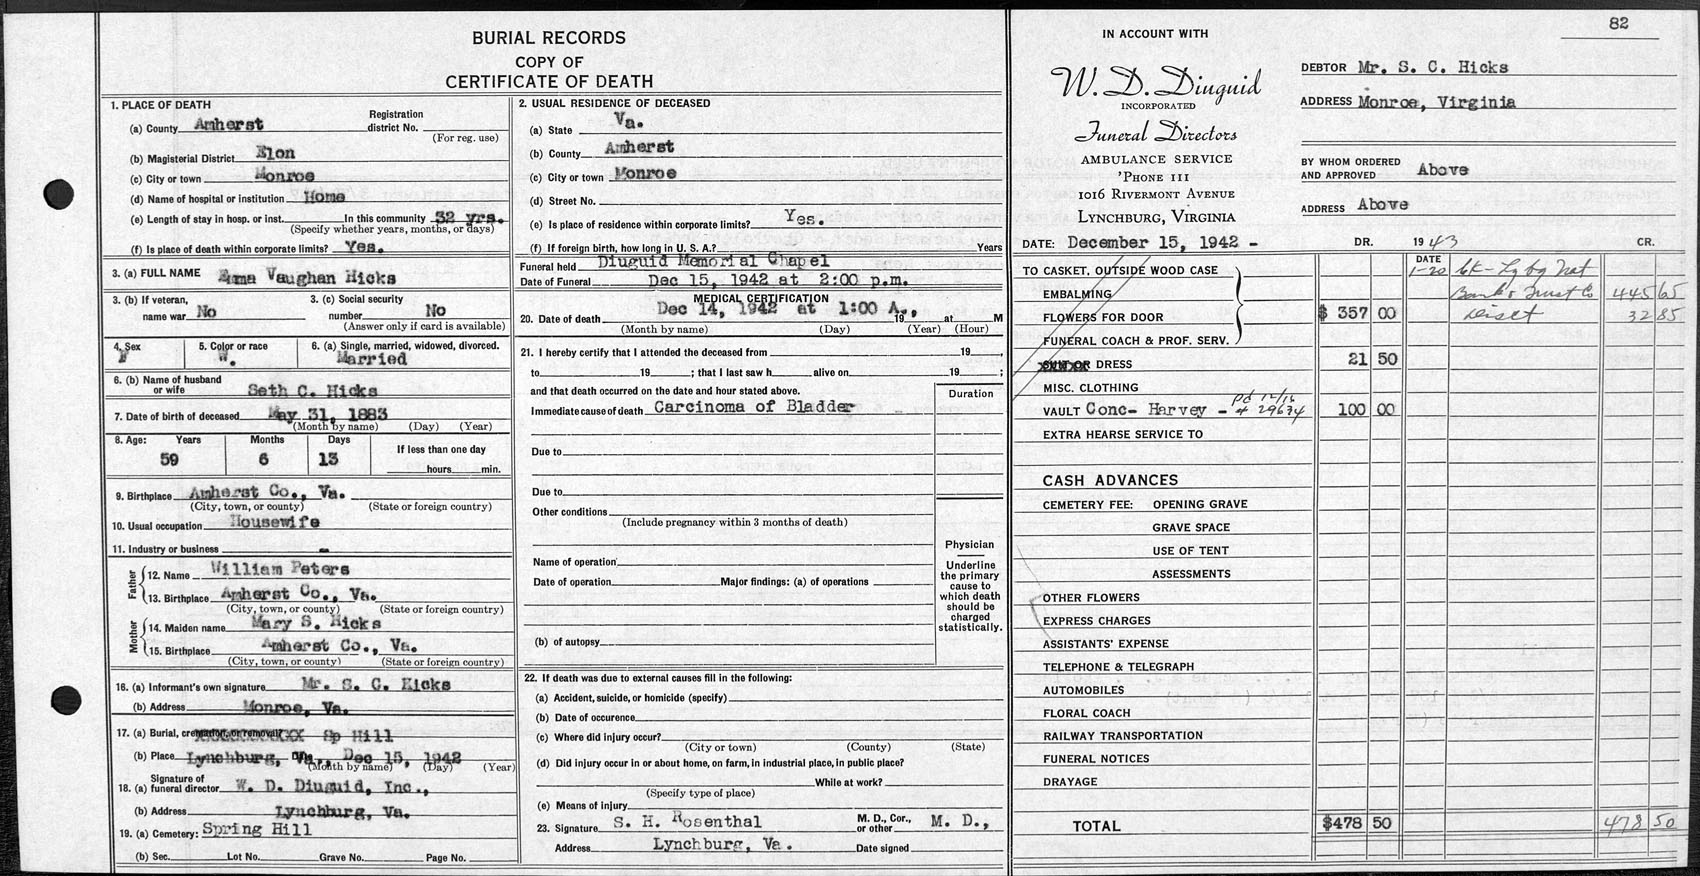 BURIAL RECORDS
COPY OF
CERTIFICATE OF DEATH
1. PLACE OF DEATH
Registration
(a) County Amherst district No.
(For reg. use)
(b) Magisterial District Elon
(c) City or town Monroe
(d) Name of hospital or institution Home
(e) Length of stay in hosp. or inst. In this community 32 yrs.
(Specify whether years, months, or days)
(f) Is place of death within corporate limits? Yes.
3. (a) FULL NAME Emma Vaughan Hicks
3. (b) If veteran, 3. (c) Social security
name war No number No
(Answer only if card is available)
4. Sex 5. Color or race 6. (a) Single, married, widowed, divorced.
F W. Married
6. (b) Name of husband
or wife Seth C. Hicks
7. Date of birth of deceased May 31, 1883
(Month by name) (Day) (Year)
8. Age: Years Months Days
If less than one day
59 6 13
hours min.
9. Birthplace Amherst Co., Va.
(City, town, or county) (State or foreign country)
10. Usual occupation Housewife
11. Industry or business -
Father
12. Name William Peters
13. Birthplace Amherst Co., Va.
(City, town, or county) (State or foreign country)
Mother
14. Maiden name Mary S. Hicks
15. Birthplace Amherst Co., Va.
(City, town, or county) (State or foreign country)
16. (a) Informant's own signature Mr. S. C. Hicks
(b) Address Monroe, Va.
17. (a) Burial, cremation, or removal? XXXXXXXXXX Sp Hill
(b) Place Lynchburg, Va., Dec 15, 1942
(Month by name) (Day) (Year)
Signature of
18. (a) funeral director W. D. Diuguid, Inc.,
(b) Address Lynchburg, Va.
19. (a) Cemetery: Spring Hill
(b) Sec. Lot No. Grave No. Page No.
2. USUAL RESIDENCE OF DECEASED
(a) State Va.
(b) County Amherst
(c) City or town Monroe
(d) Street No.
(e) Is place of residence within corporate limits? Yes.
(f) If foreign birth, how long in U. S. A.? Years
Funeral held Diuguid Memorial Chapel
Date of Funeral Dec 15, 1942 at 2:00 p.m.
MEDICAL CERTIFICATION
20. Date of death Dec 14, 1942 at 1:00 A., 19 at M
(Month by name) (Day) (Year) (Hour)
21. I hereby certify that I attended the deceased from 19 ,
to 19 ; that I last saw h alive on 19 ;
and that death occurred on the date and hour stated above.
Duration
Immediate cause of death Carcinoma of Bladder
Due to
Due to
Other conditions
(Include pregnancy within 3 months of death)
Name of operation
Date of operation Major findings: (a) of operations
(b) of autopsy
Physician
Underline
the primary
cause to
which death
should be
charged
statistically.
22. If death was due to external causes fill in the following:
(a) Accident, suicide, or homicide (specify)
(b) Date of occurence
(c) Where did injury occur?
(City or town) (County) (State)
(d) Did injury occur in or about home, on farm, in industrial place, in public place?
While at work?
(Specify type of place)
(e) Means of injury
23. Signature S. H. Rosenthal M. D., Cor., or other M. D.,
Address Lynchburg, Va. Date signed
82
IN ACCOUNT WITH
W. D. Diuguid
INCORPORATED
Funeral Directors
AMBULANCE SERVICE
'PHONE 111
1016 RIVERMONT AVENUE
LYNCHBURG, VIRGINIA
DEBTOR Mr. S. C. Hicks
ADDRESS Monroe, Virginia
BY WHOM ORDERED
AND APPROVED Above
ADDRESS Above
DATE: December 15, 1942 - DR. 19 43 CR.
DATE
TO CASKET, OUTSIDE WOOD CASE 1-20 Ck- Lybg Nat
EMBALMING Bank & Trust Co 445 65
FLOWERS FOR DOOR $ 357 00 Disct 32 85
FUNERAL COACH & PROF. SERV.
SUIT OR DRESS 21 50
MISC. CLOTHING
VAULT Conc- Harvey - pd 12/16 # 29634 100 00
EXTRA HEARSE SERVICE TO
CASH ADVANCES
CEMETERY FEE: OPENING GRAVE
GRAVE SPACE
USE OF TENT
ASSESSMENTS
OTHER FLOWERS
EXPRESS CHARGES
ASSISTANTS' EXPENSE
TELEPHONE & TELEGRAPH
AUTOMOBILES
FLORAL COACH
RAILWAY TRANSPORTATION
FUNERAL NOTICES
DRAYAGE
TOTAL $478 50 478 50